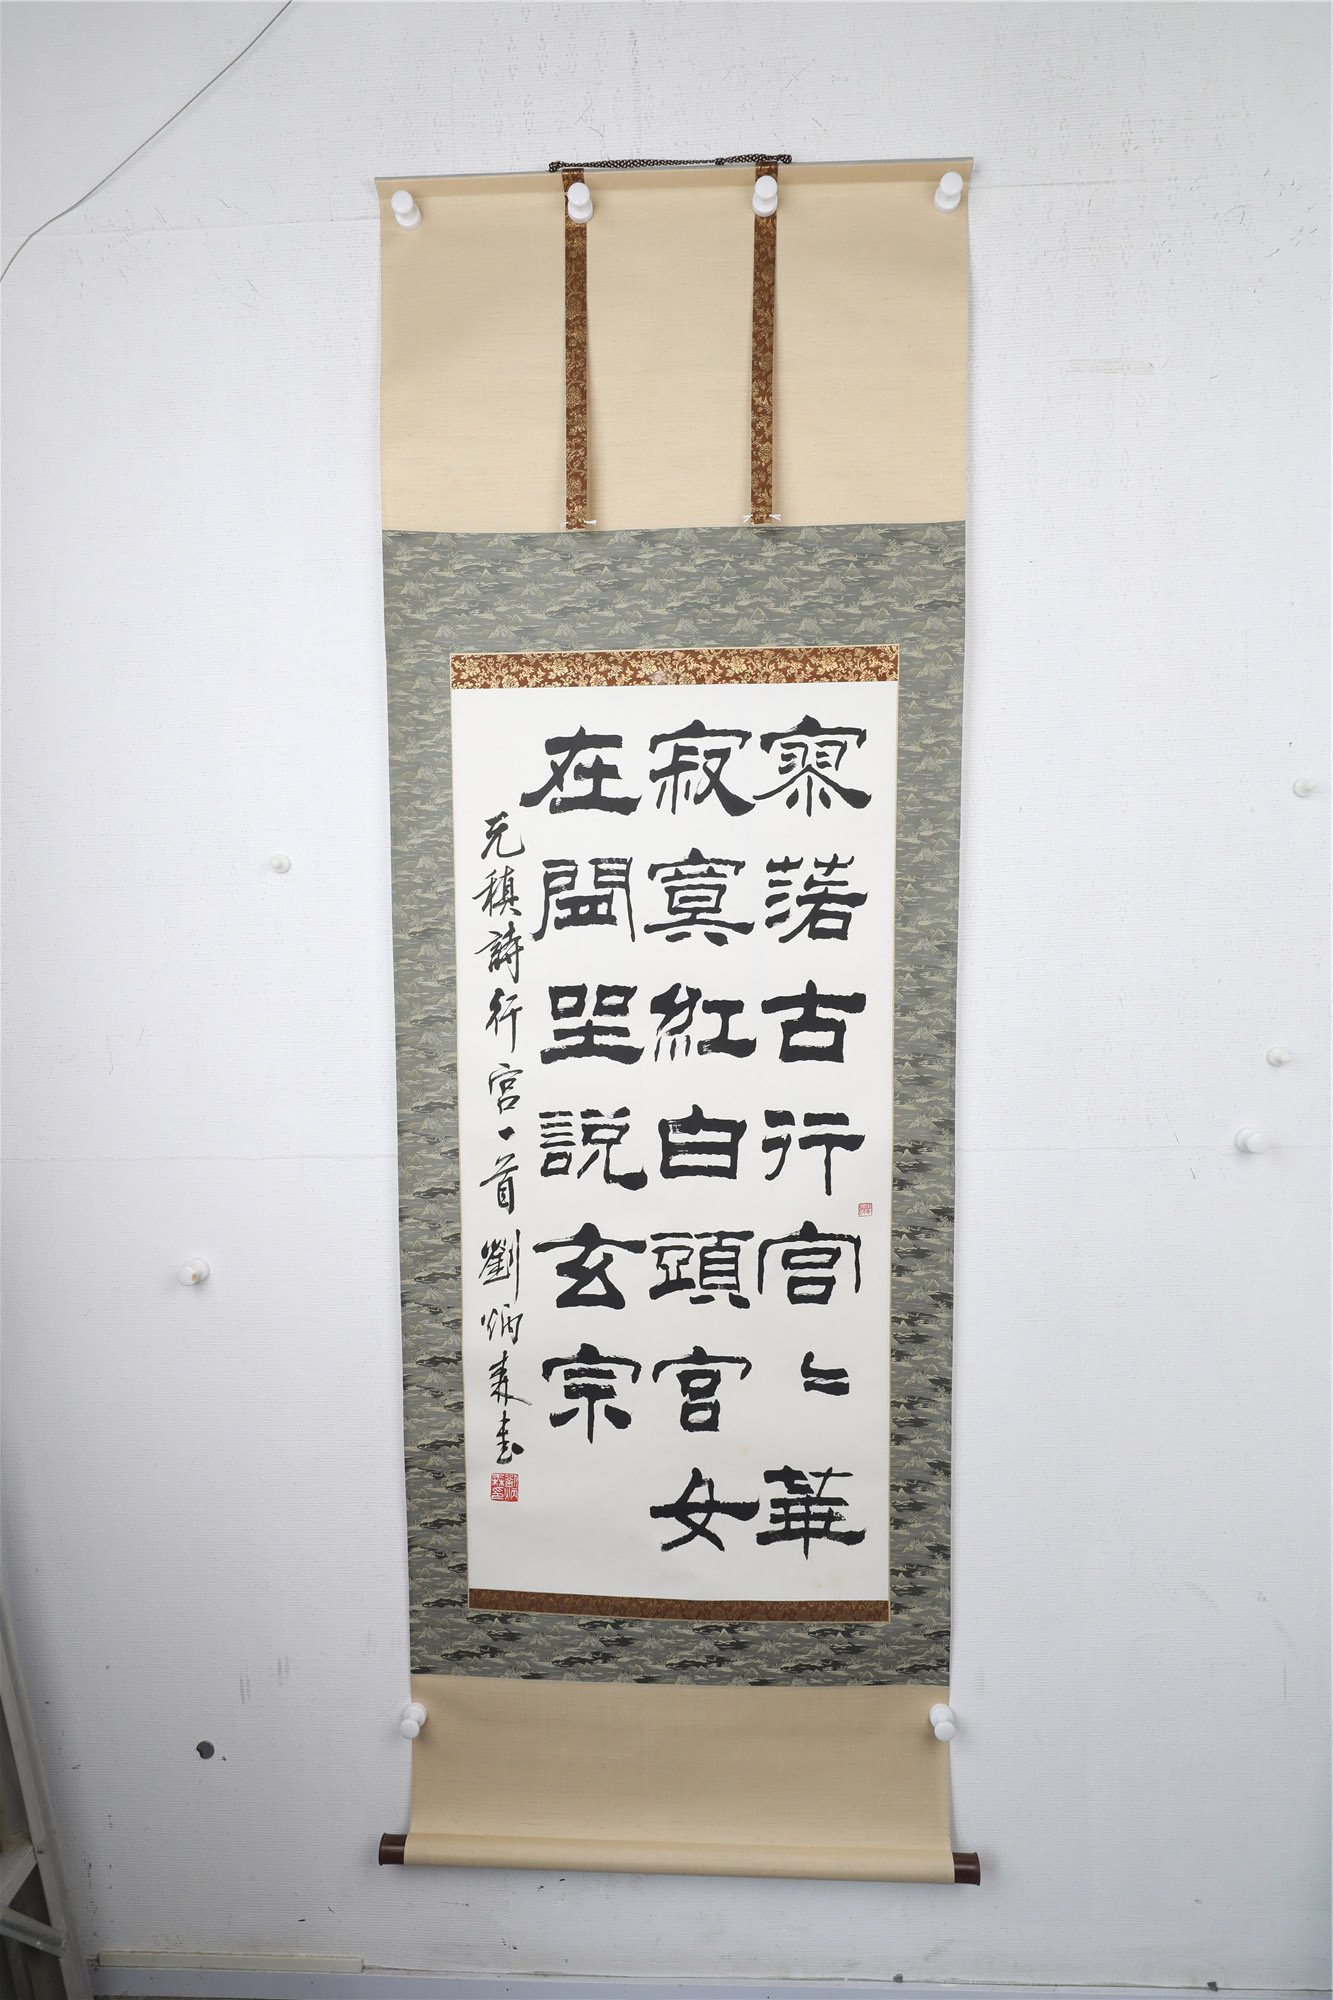 寥落古行宮〻華
寂寞紅白頭宮女
在閒坐說玄宗
元稹詩行宮一首 劉炳森書
劉炳森印